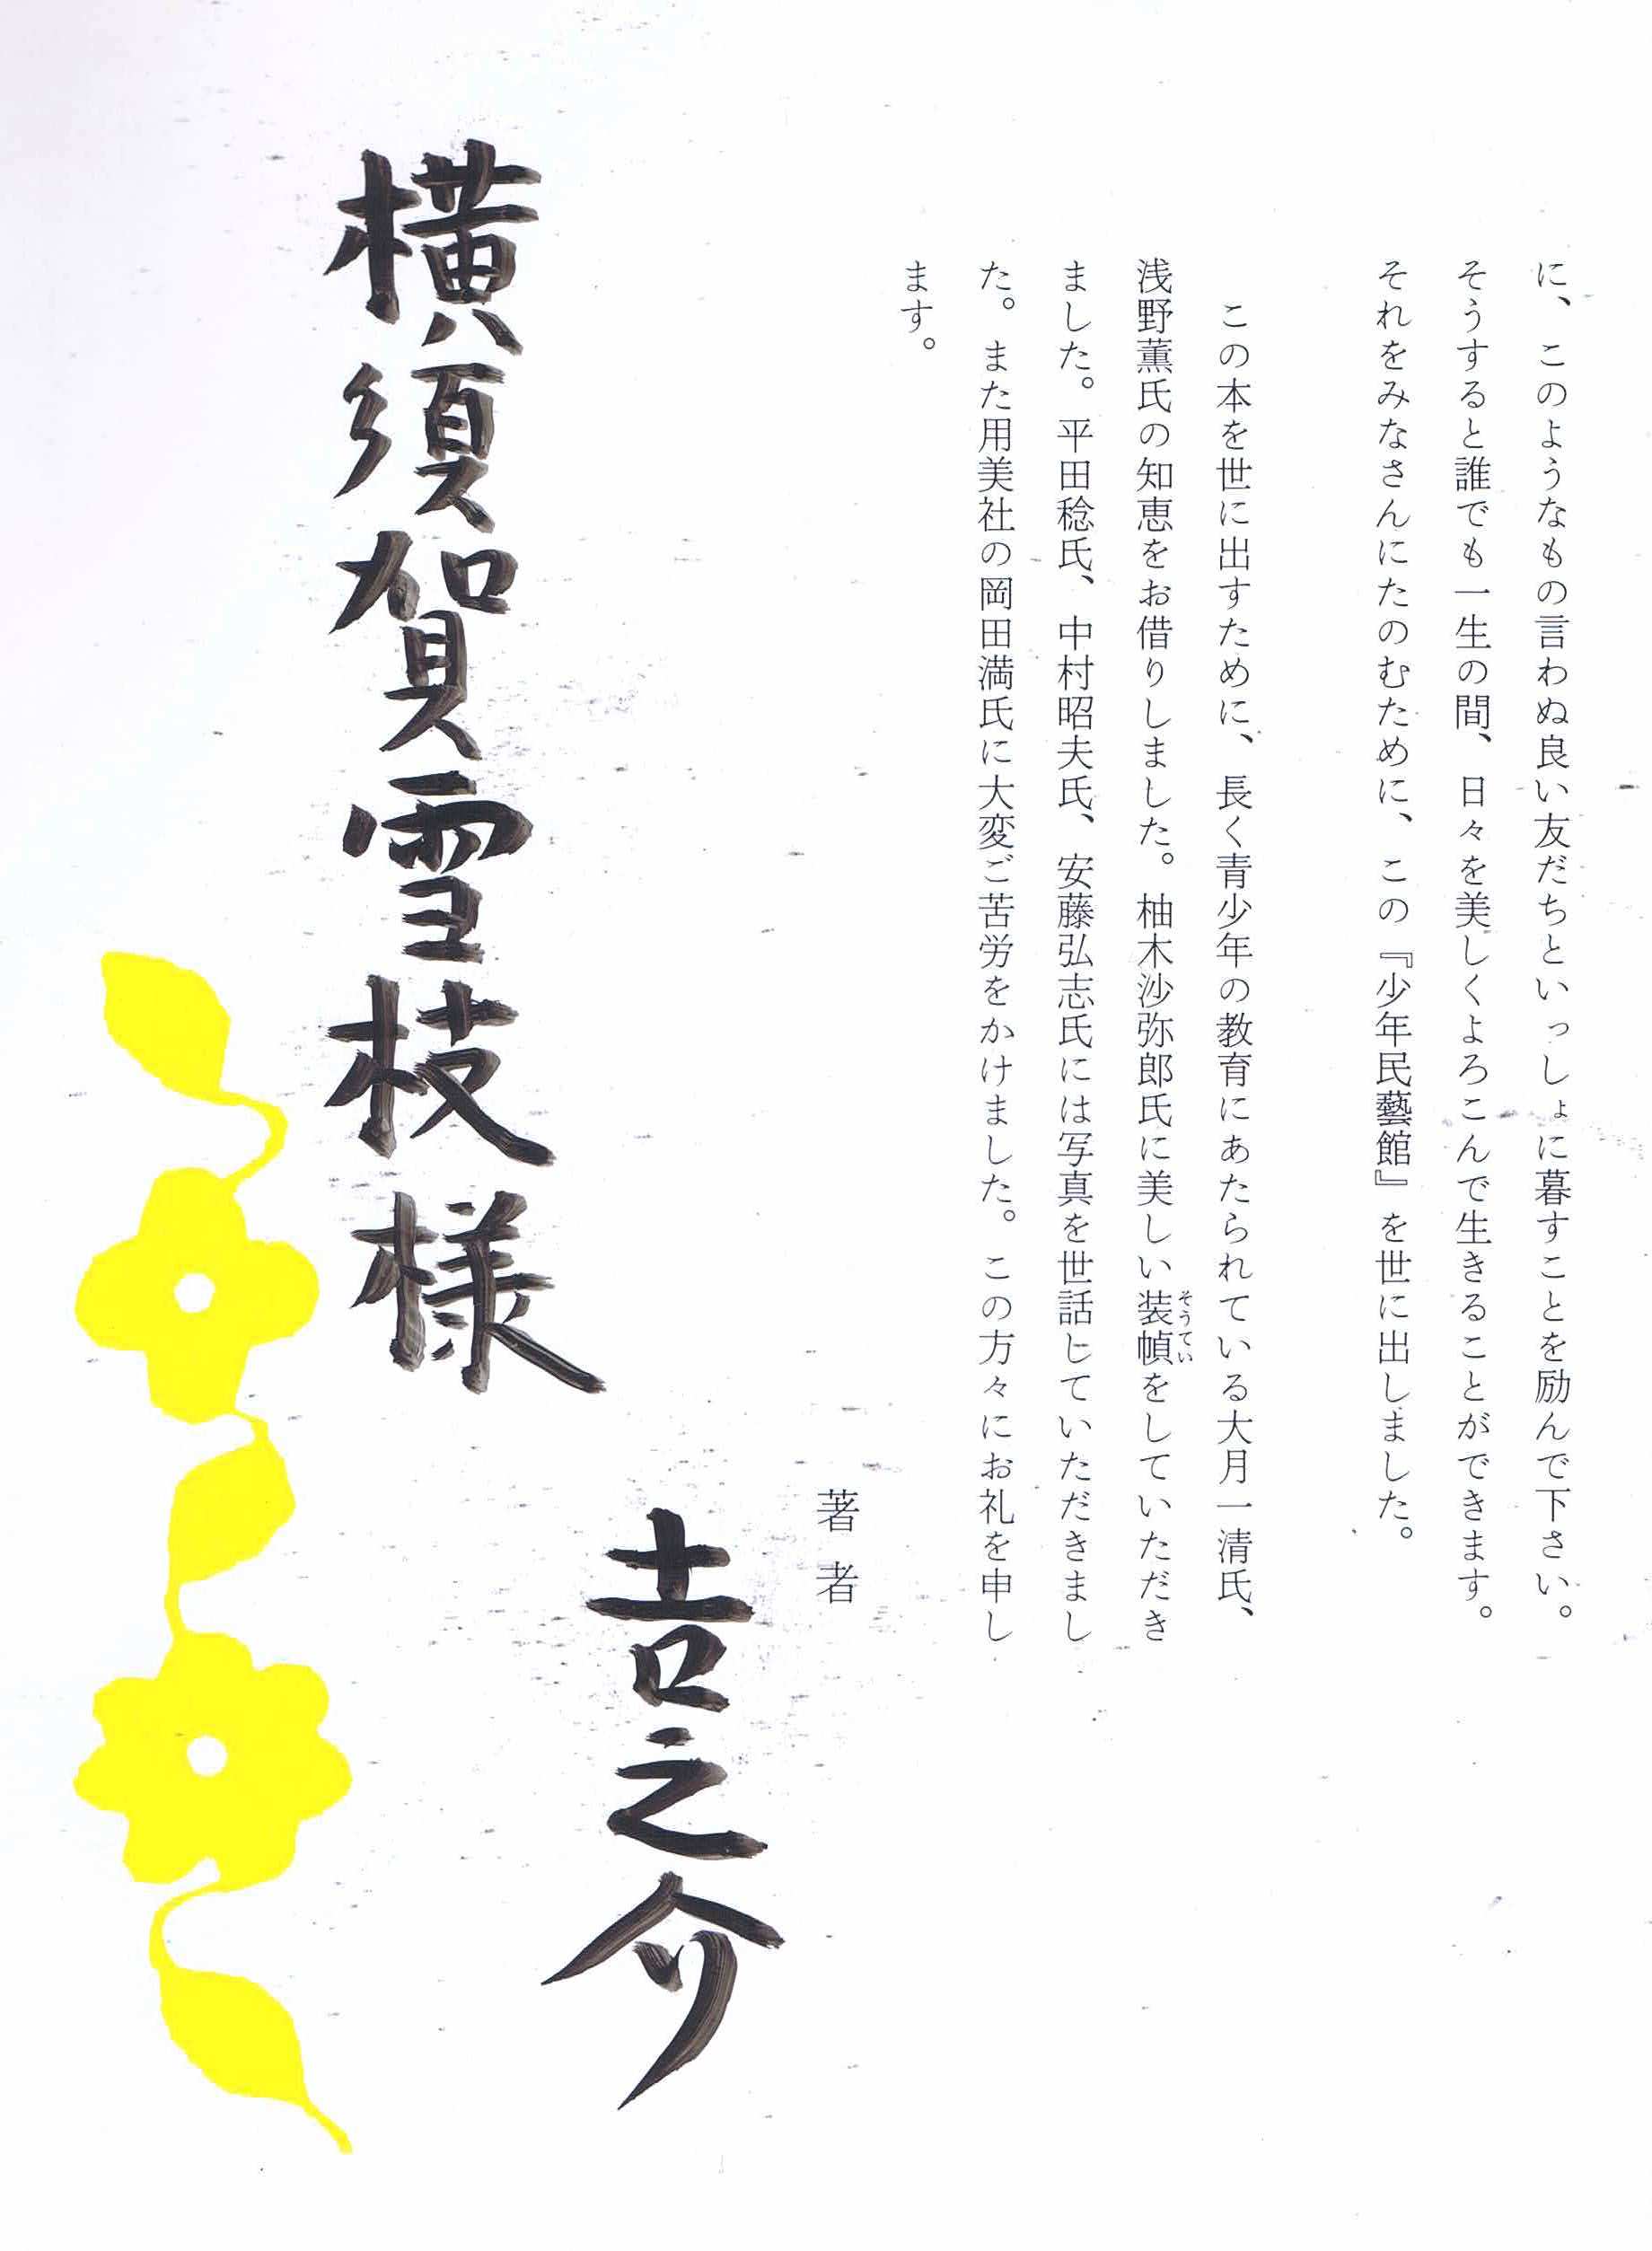 に、このようなもの言わぬ良い友だちといっしょに暮すことを励んで下さい。
そうすると誰でも一生の間、日々を美しくよろこんで生きることができます。
それをみなさんにたのむために、この『少年民藝館』を世に出しました。
この本を世に出すために、長く青少年の教育にあたられている大月一清氏、
浅野薫氏の知恵をお借りしました。柚木沙弥郎氏に美しい装幀をしていただき
そうてい
ました。平田稔氏、中村昭夫氏、安藤弘志氏には写真を世話していただきまし
た。また用美社の岡田満氏に大変ご苦労をかけました。この方々にお礼を申し
ます。
著者
吉之介
横須賀雪枝様